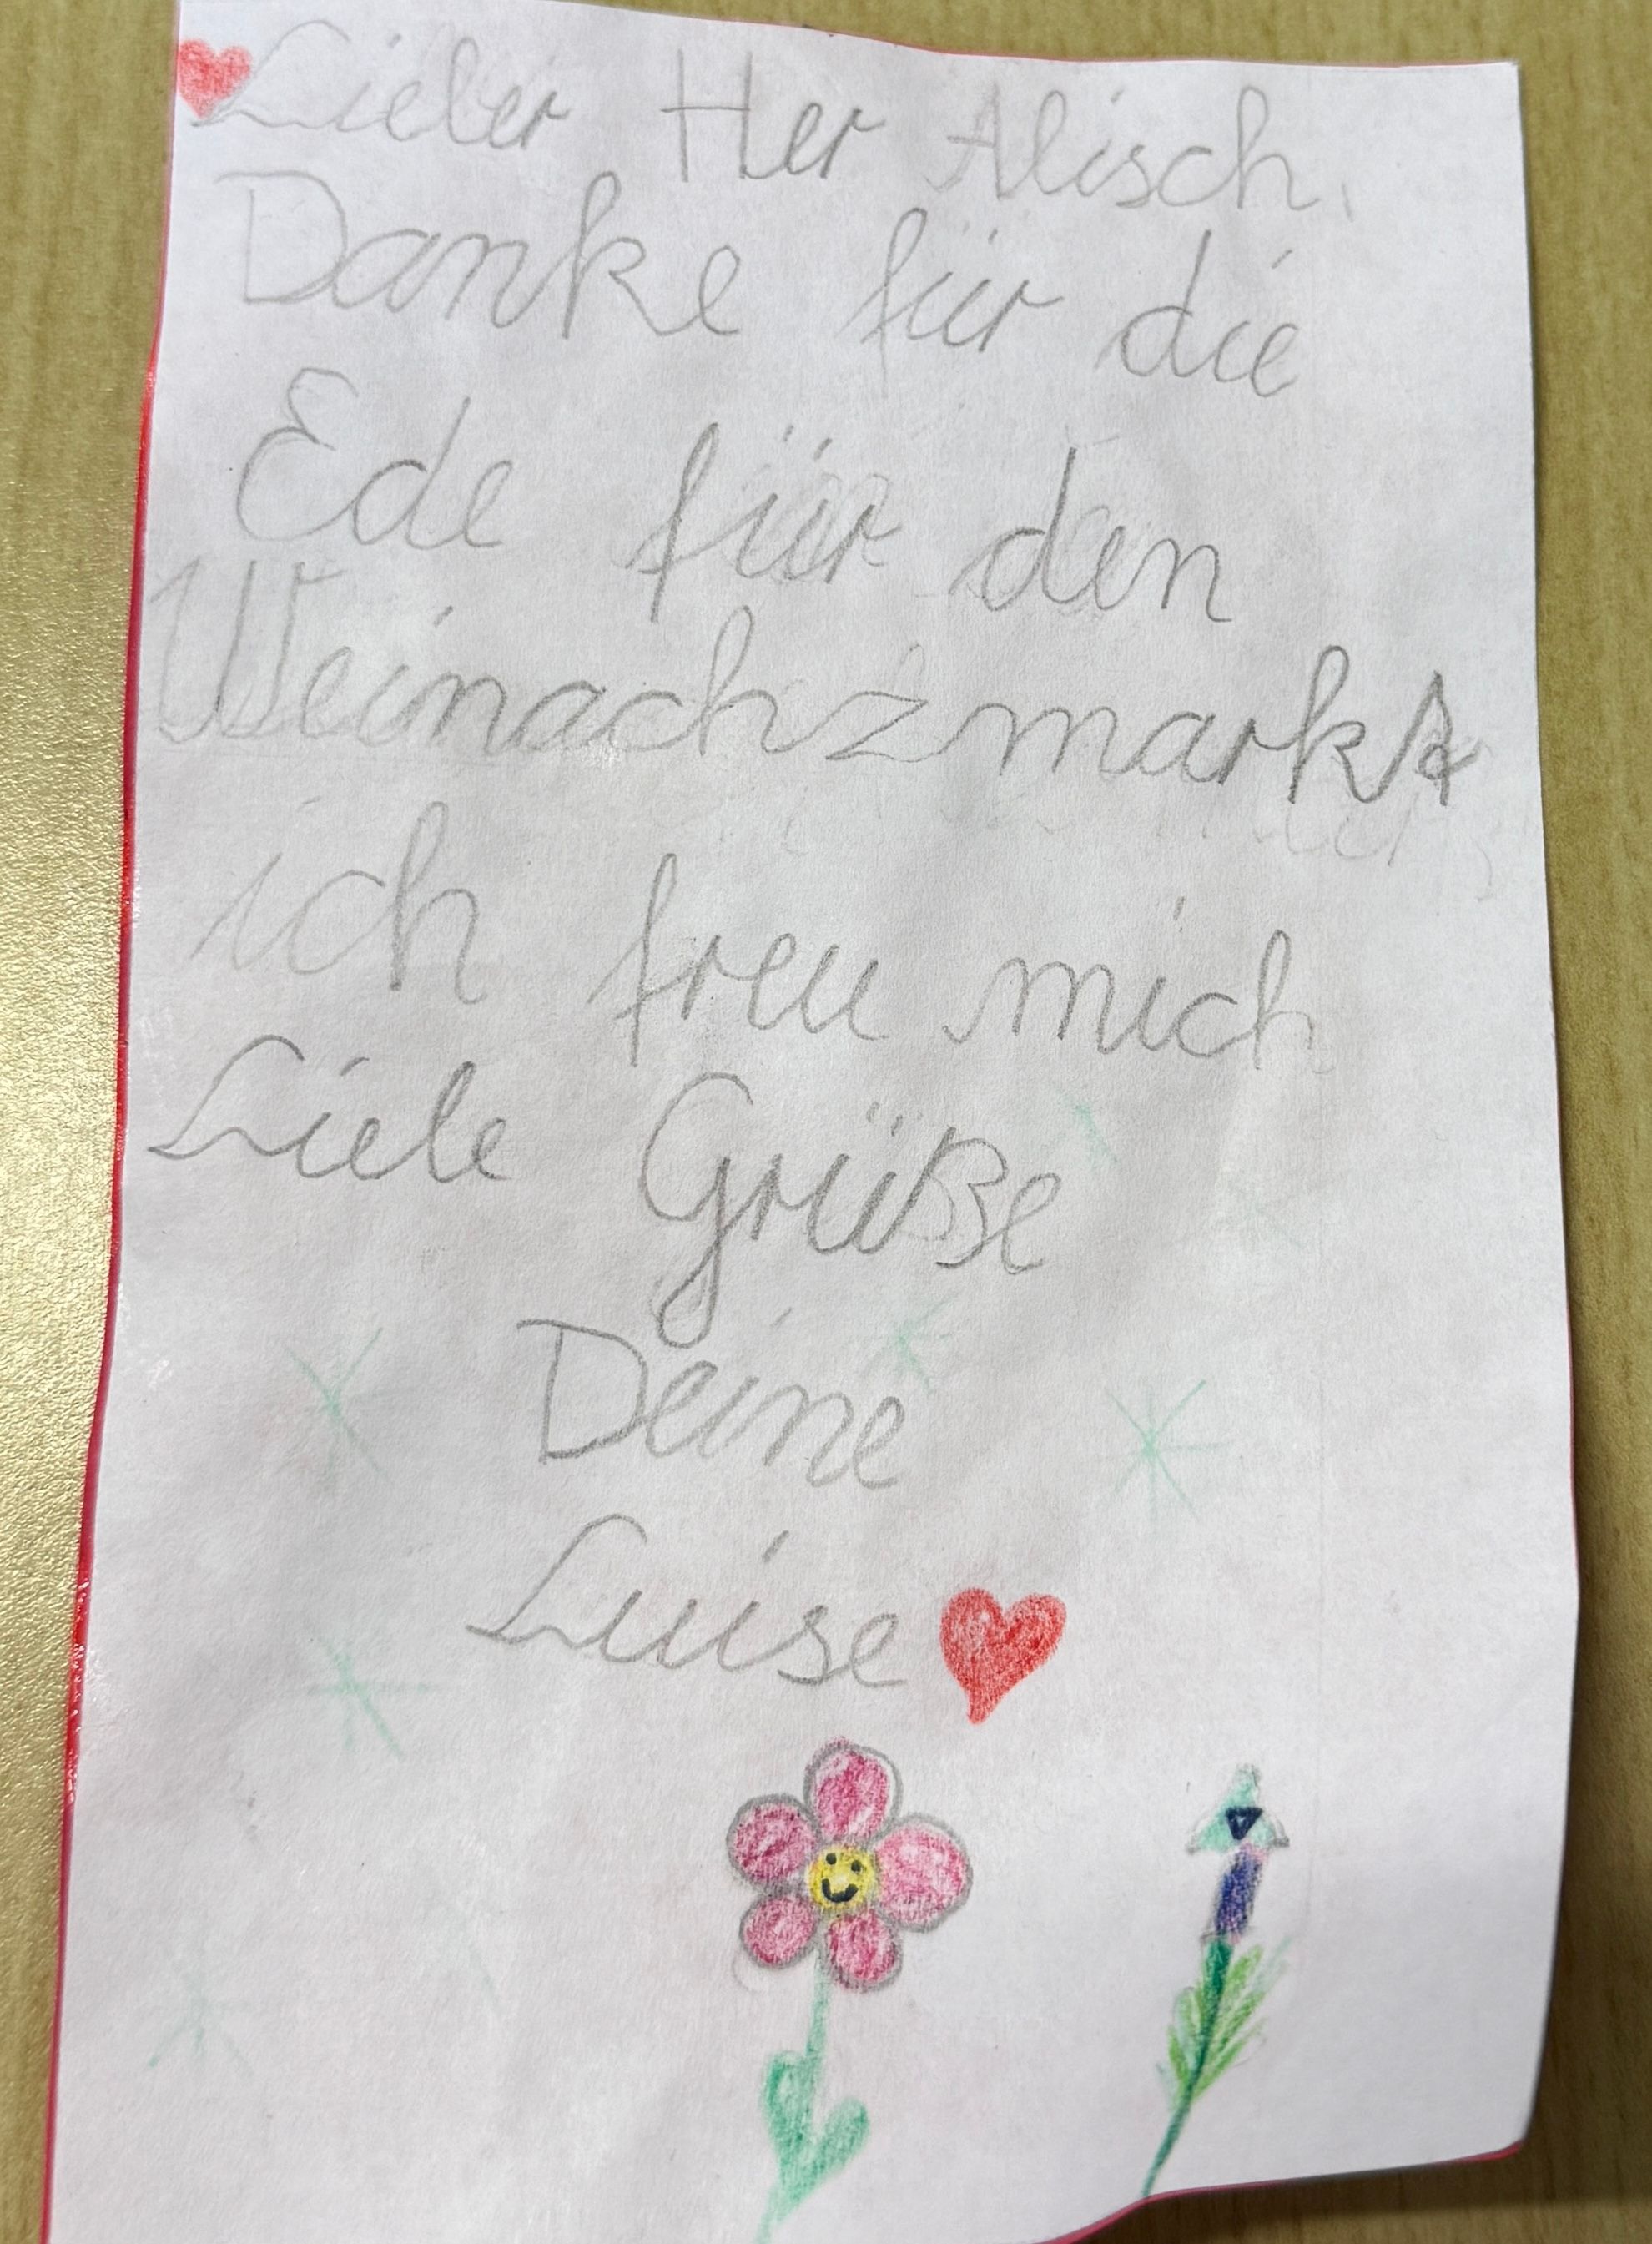 Lieber Her Alisch,
Danke für die
Ede für den
Weinachzmarkt
ich freu mich
Liebe Grüße
Deine
Luise